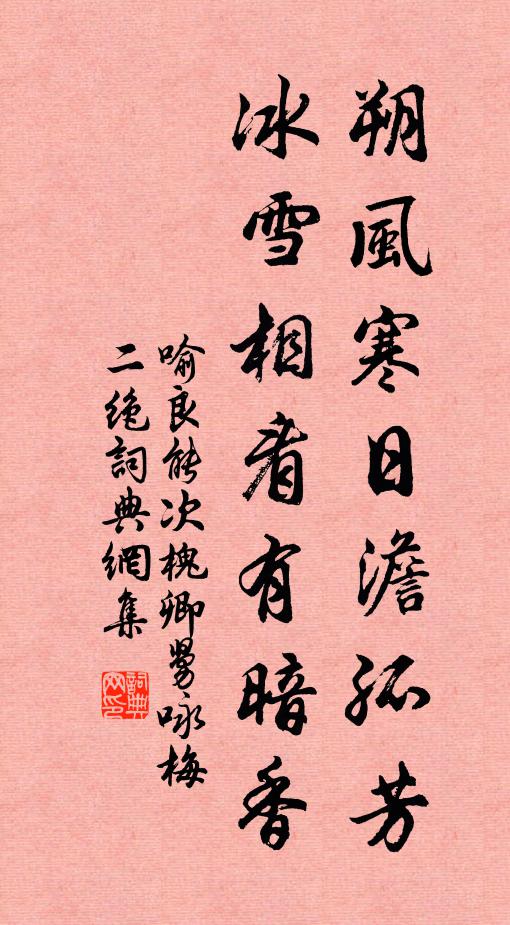 朔風寒日澹孤芳
冰雪相看有暗香
喻良能次槐卿舅咏梅
二絶詞典網集
詞典
網印